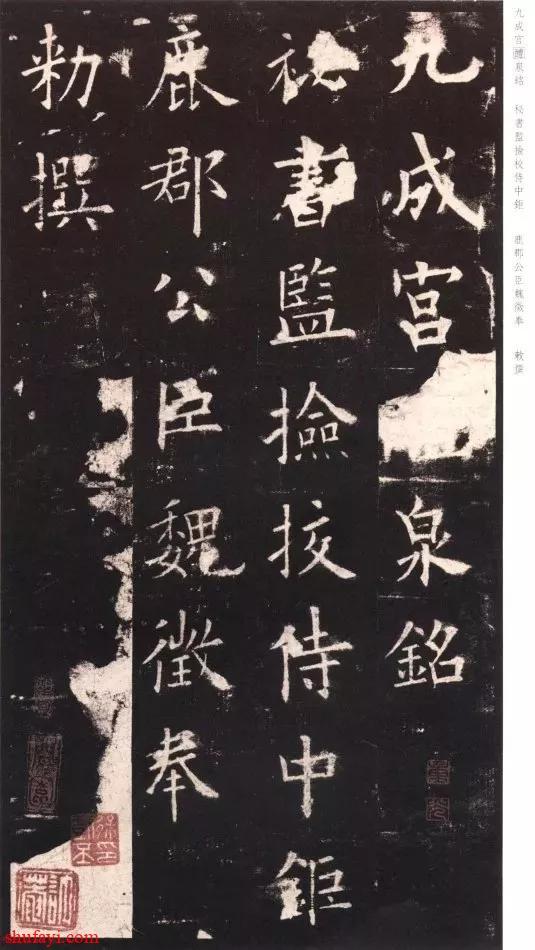 九成宮泉銘
祕書監撿挍侍中鉅
鹿郡公臣魏徵奉
勅撰
九成宮醴泉銘 秘書監撿校侍中鉅 鹿郡公臣魏徵奉 敕撰
shufayi.com